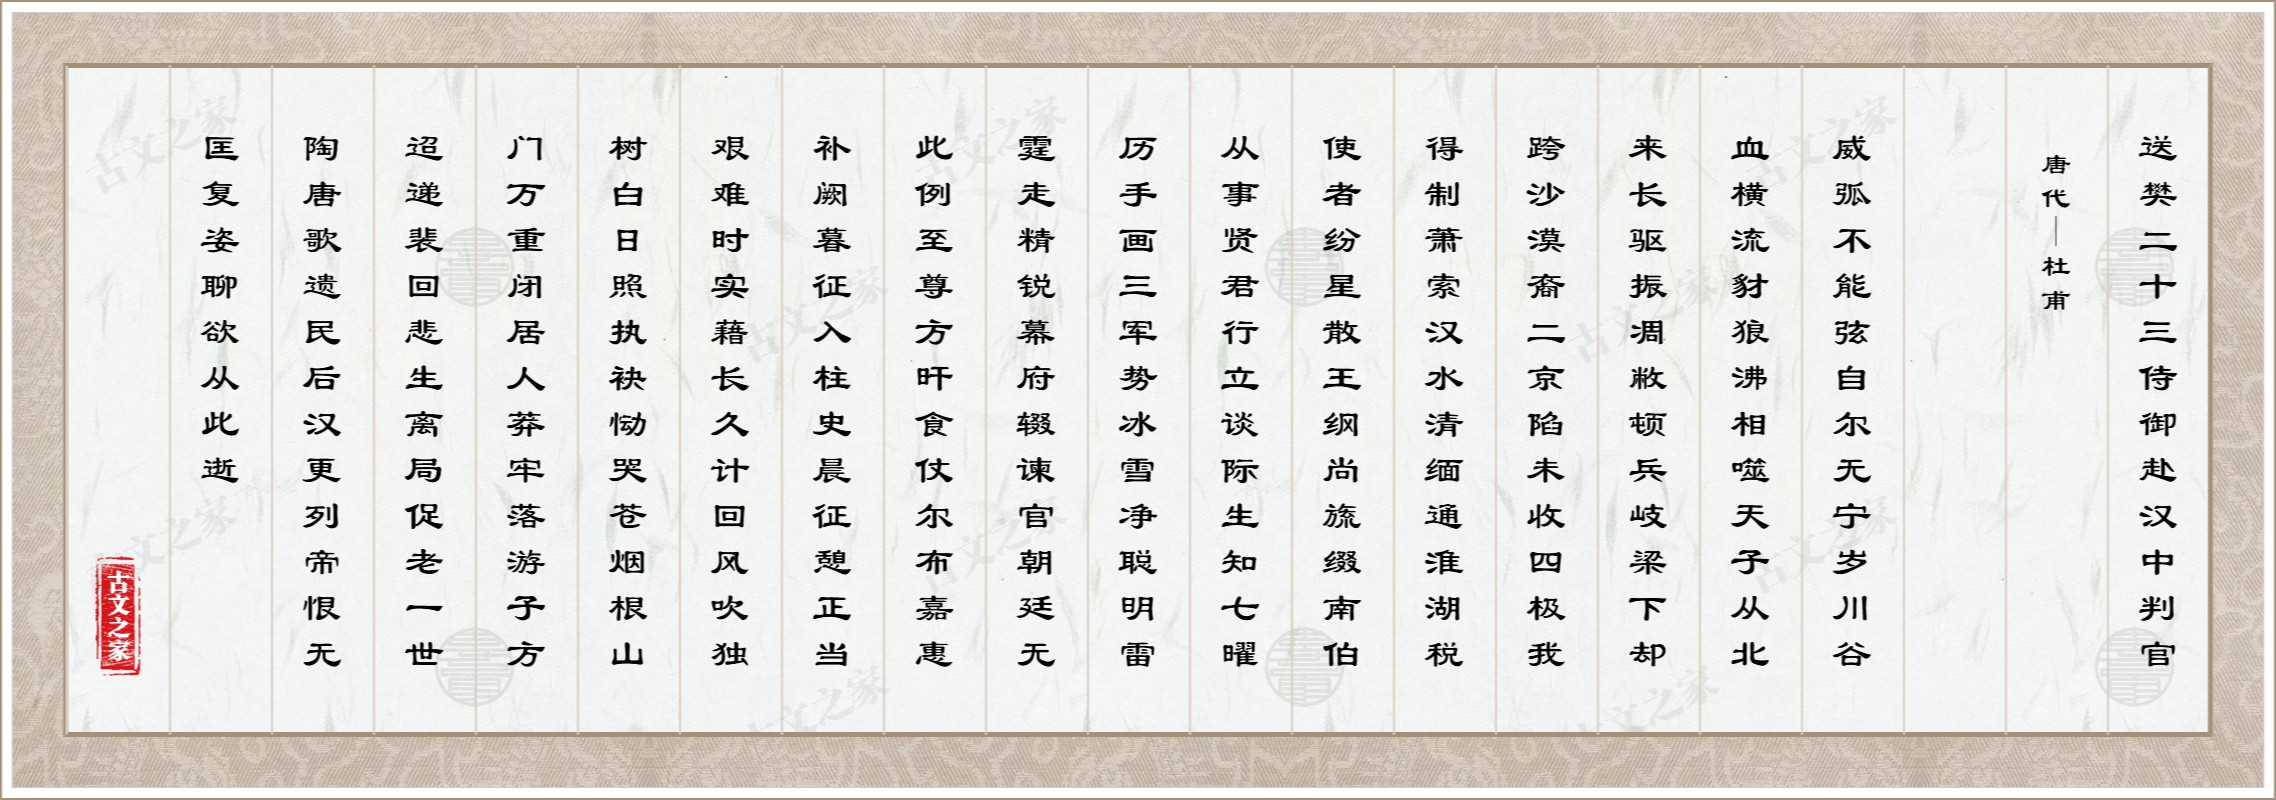 送樊二十三侍御赴汉中判官
唐代—杜甫
威弧不能弦自尔无宁岁川谷
血横流豺狼沸相噬天子从北
来长驱振凋敝顿兵岐梁下却
跨沙漠裔二京陷未收四极我
得制萧索汉水清缅通淮湖税
使者纷星散王纲尚旒缀南伯
从事贤君行立谈际生知七曜
历手画三军势冰雪净聪明雷
霆走精锐幕府辍谏官朝廷无
此例至尊方旰食仗尔布嘉惠
补阙暮征入柱史晨征憩正当
艰难时实藉长久计回风吹独
树白日照执袂恸哭苍烟根山
门万重闭居人莽牢落游子方
迢递裴回悲生离局促老一世
陶唐歌遗民后汉更列帝恨无
匡复姿聊欲从此逝
古文之家